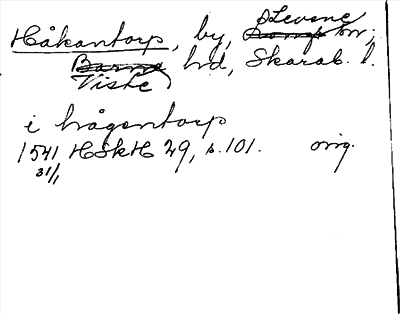 Håkantorp, by, Levene sn;
Viste hd, Skarab. l.
i hågentorp
1541 HSkH 29, s. 101. orig.
31/1